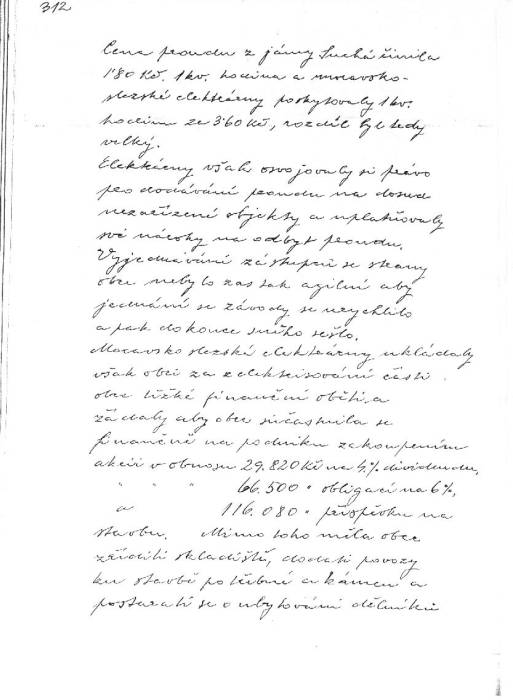 312
Cena proudu z jámy Suchá činila
1'80 Kč. 1 kv. hodina a moravsko-
slezské elektrárny poskytovaly 1 kv.
hodinu za 3'60 Kč, rozdíl byl tedy
velký.
Elektrárny však osvojovaly si právo
pro dodávání proudu na dosud
nezařízené objekty a uplatňovaly
své nároky na odbyt proudu.
Vyjednávání zástupců se strany
obce nebylo zas tak agilní aby
jednání se závody se urychlilo
a pak dokonce s něho sešlo.
Moravsko slezské elektrárny ukládaly
však obci za zelektrisování části
obce těžké finanční oběti, a
žádaly aby obec súčastnila se
finančně na podniku zakoupením
akcií v obnosu 29.820 Kč na 4% dividendu,
" " " 66.500 " obligací na 6%,
a 116.080 " příspěvku na
stavbu. Mimo toho měla obec
zříditi skladiště, dodati povozy
ku stavbě potřebné a kámen a
postarati se o ubytování dělníků